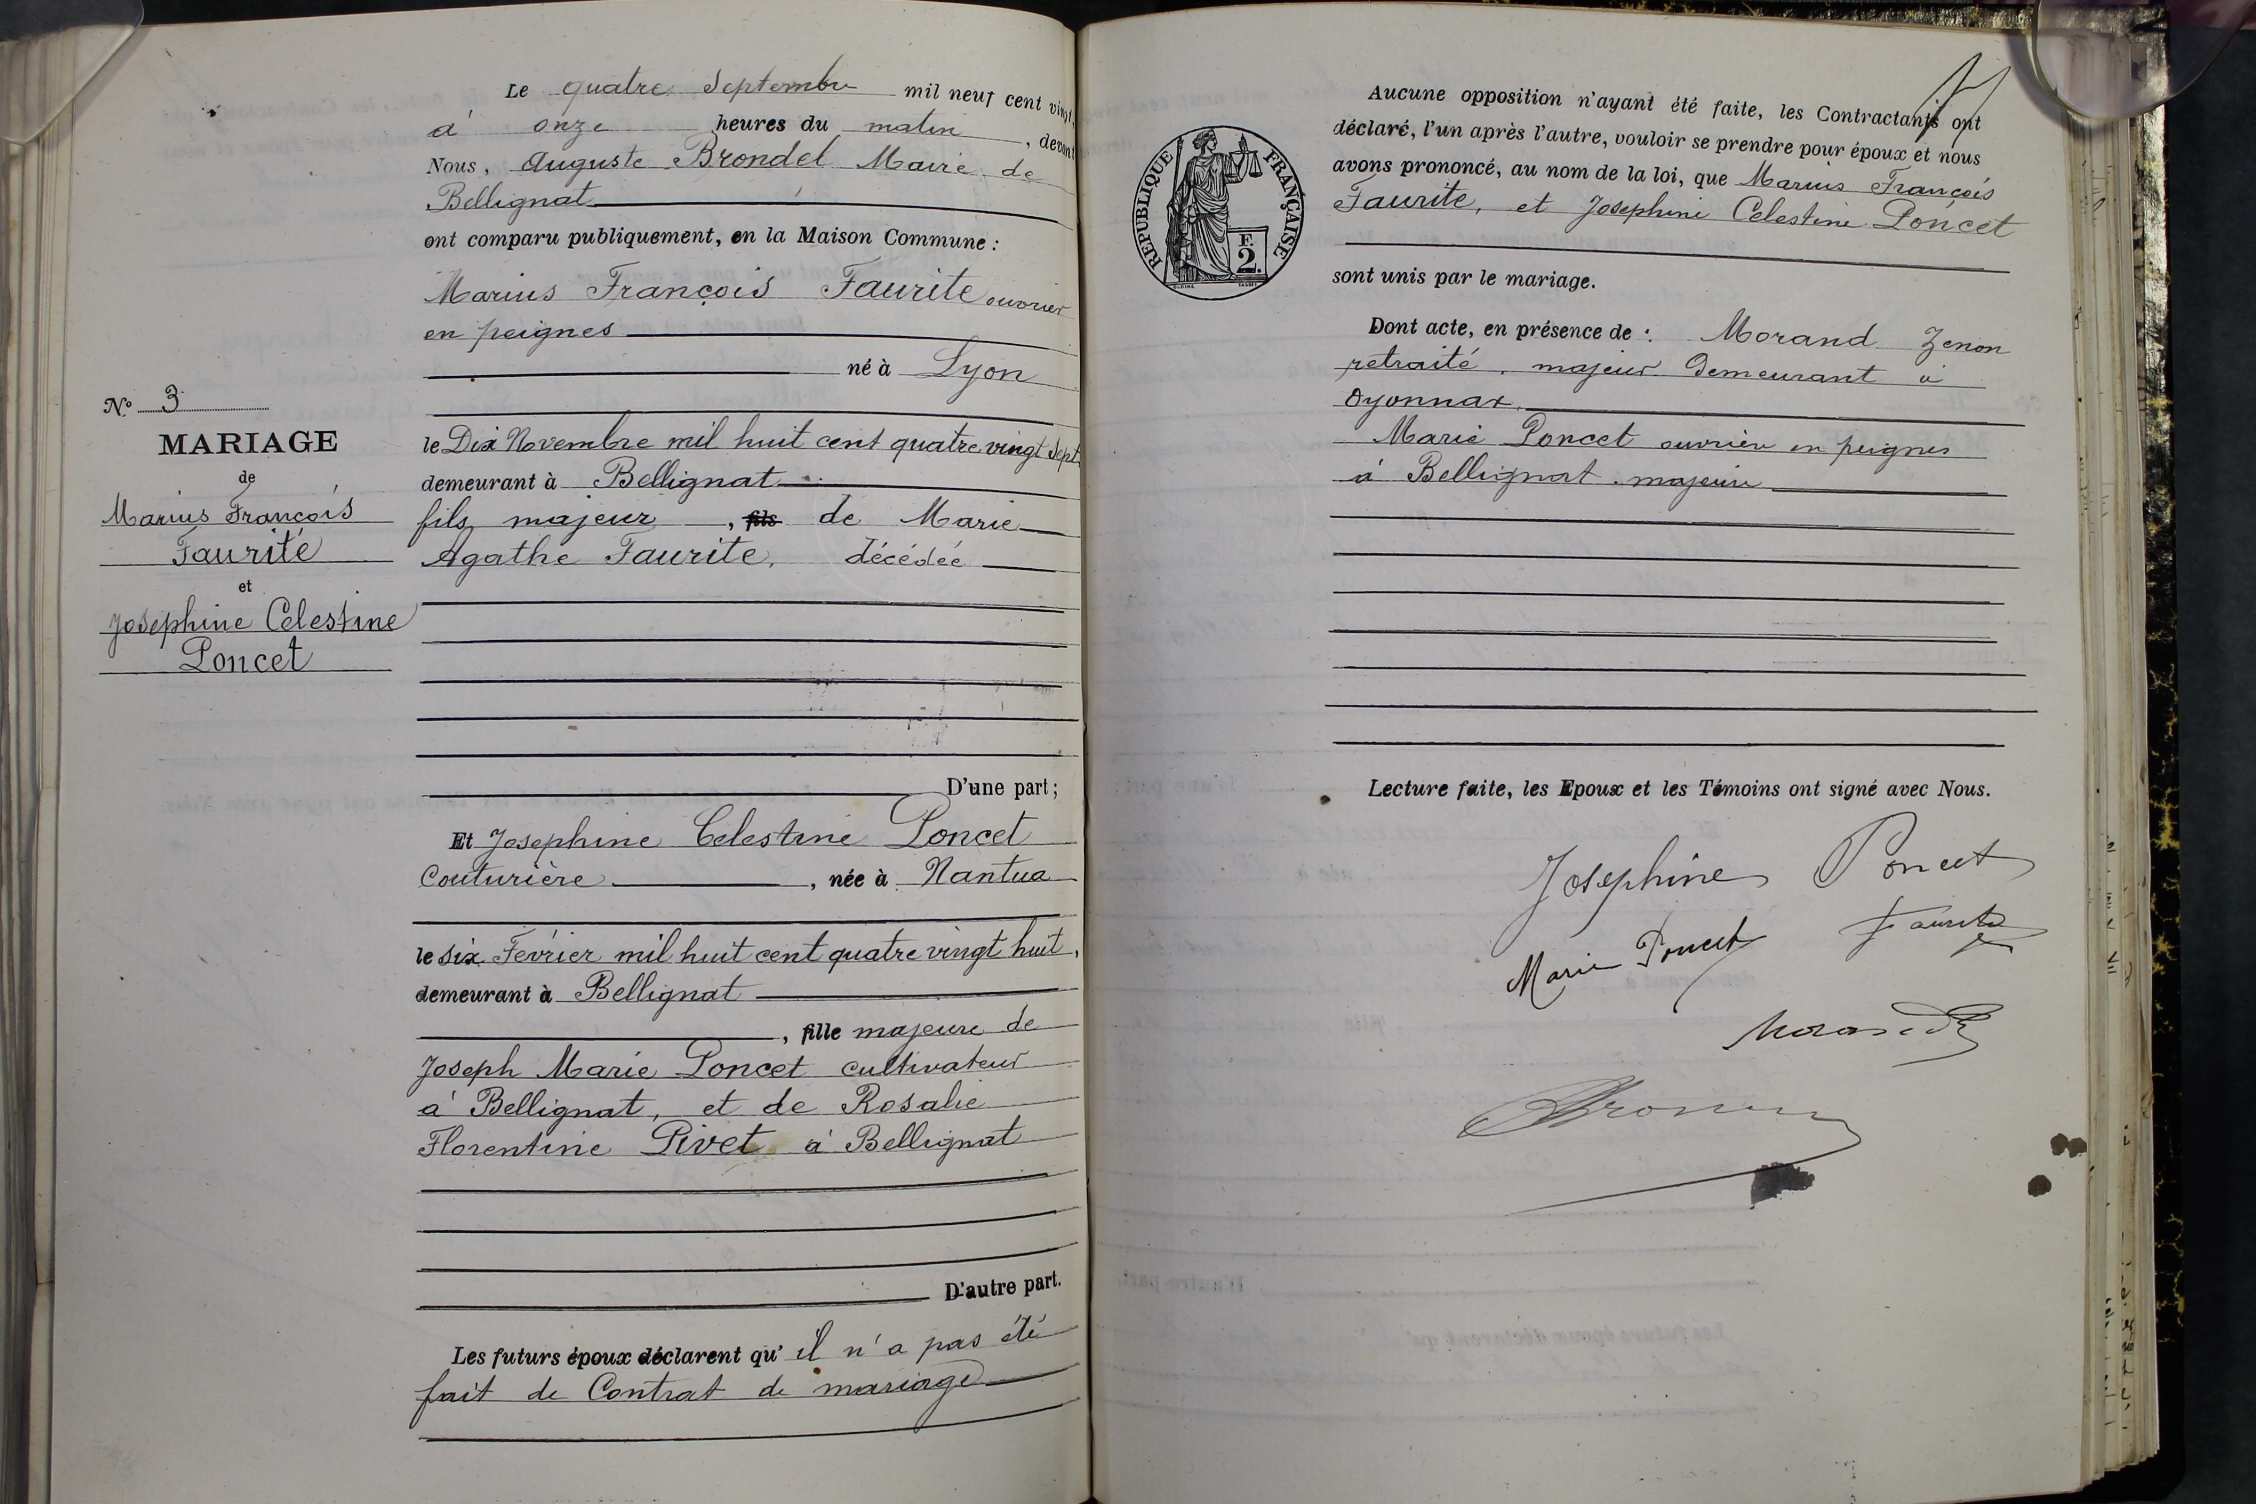 N° 3
MARIAGE
de
Marius François
Faurite
et
Josephine Celestine
Poncet
Le quatre Septembre mil neuf cent vingt,
à onze heures du matin, devant
Nous, Auguste Brondel Maire de
Bellignat
ont comparu publiquement, en la Maison Commune :
Marius François Faurite ouvrier
en peignes
né à Lyon
le Dix Novembre mil huit cent quatre vingt Sept
demeurant à Bellignat
fils majeur, fils de Marie
Agathe Faurite, décédée
D'une part;
Et Josephine Celestine Poncet
Couturière, née à Nantua
le six Février mil huit cent quatre vingt huit,
demeurant à Bellignat
, fille majeure de
Joseph Marie Poncet cultivateur
à Bellignat, et de Rosalie
Florentine Pivet à Bellignat
D'autre part.
Les futurs époux déclarent qu' il n'a pas été
fait de Contrat de mariage
REPUBLIQUE FRANÇAISE
F.
2.
Aucune opposition n'ayant été faite, les Contractants ont
déclaré, l'un après l'autre, vouloir se prendre pour époux et nous
avons prononcé, au nom de la loi, que Marius François
Faurite, et Josephine Celestine Poncet
sont unis par le mariage.
Dont acte, en présence de : Morand Zenon
retraité, majeur Demeurant à
Oyonnax.
Marie Poncet ouvrière en peignes
à Bellignat. majeure
Lecture faite, les Epoux et les Témoins ont signé avec Nous.
Josephine Poncet
Marie Poncet Faurite
Morand Z